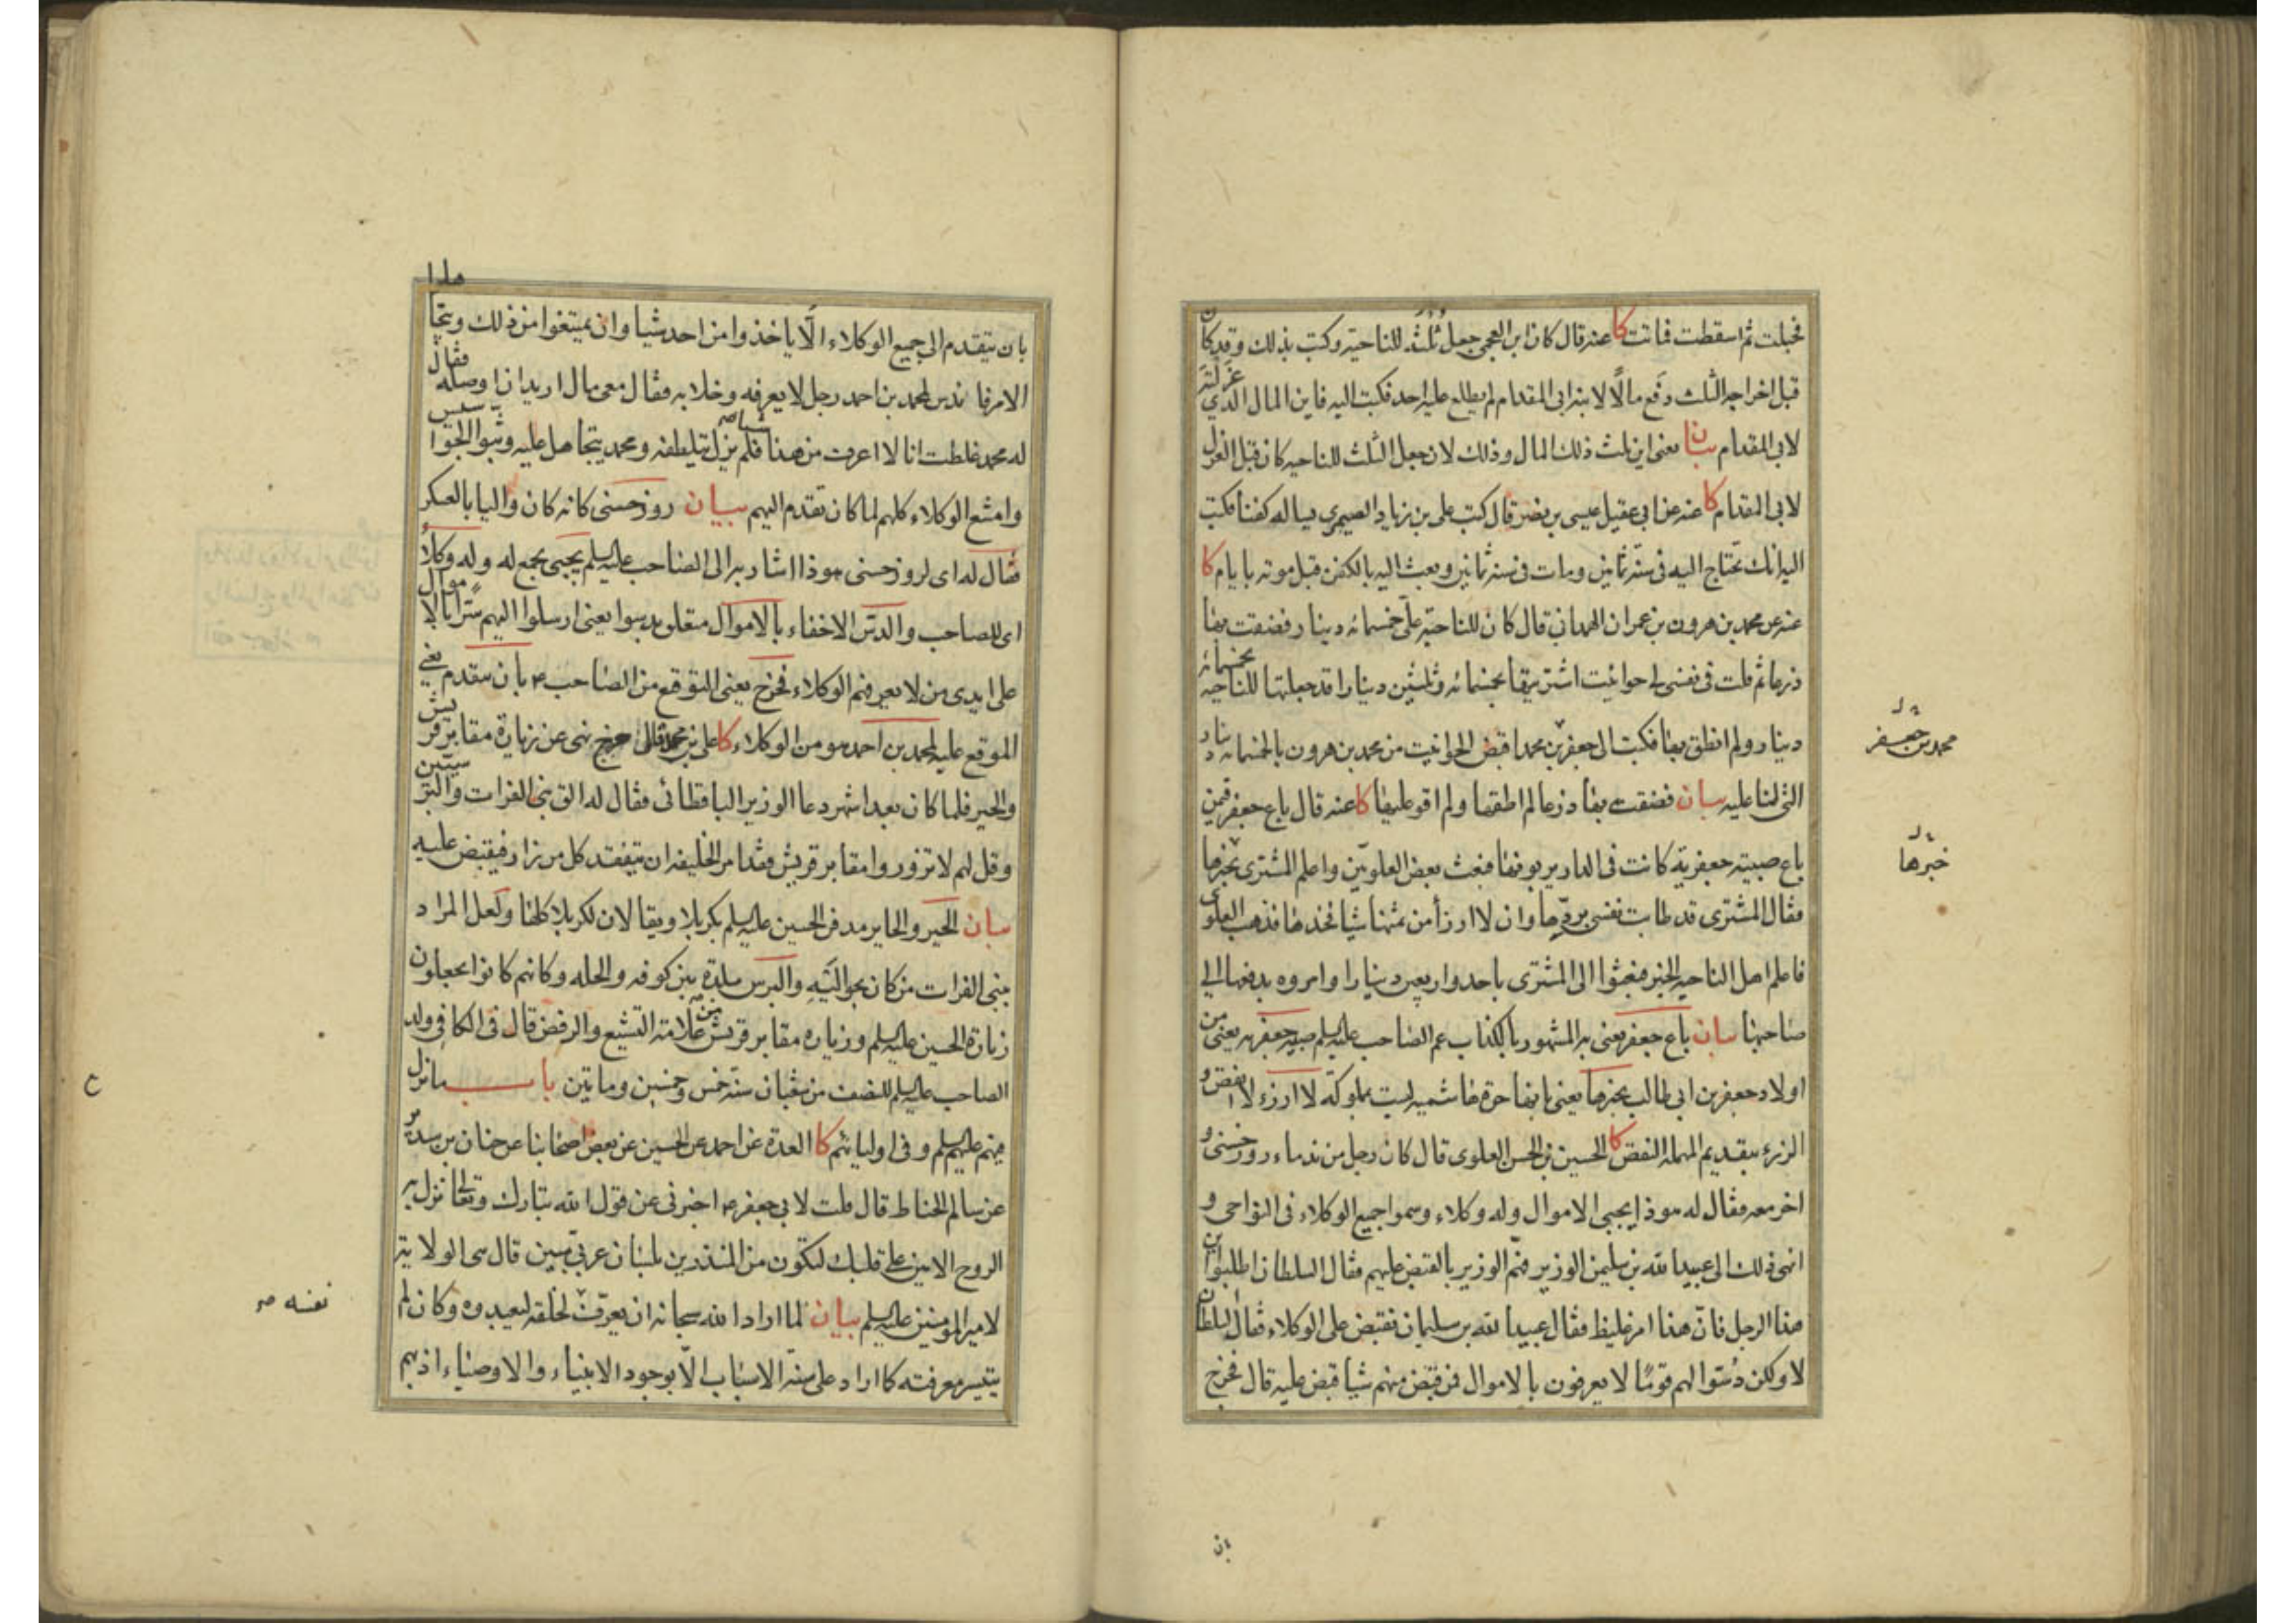 فحبلت ثم اسقطت فماتت كا عنه قال كان ابن العجمى جعل ثلثه للناحية وكتب بذلك وقد كان
قبل اخراجه الثلث دفع مالًا لابنه ابى المقدام لم يطلع عليه احد فكتب اليه فاين المال الذي عزلته
لابى المقدام بيان يعنى اين ثلث ذلك المال وذلك لان جعل الثلث للناحيه كان قبل العزل
لابى المقدام كا عنه عن ابى عقيل عيسى بن نصر قال كتب على بن زياد الصيمرى يساله كفنا فكتب
اليه انك تحتاج اليه فى سنة ثمانين ومات فى سنة ثمانين وبعث اليه بالكفن قبل موته بايام كا
عنه عن محمد بن هرون بن عمران الهمدانى قال كان للناحية علىّ خمسمائه دينار فضقت بها
ذرعا ثم قلت فى نفسى لى حوانيت اشتريتها بخمسمائه وثلثين دينارا قد جعلتها للناحيه بخمسمائه
دينار ولم انطق بها فكتب الى جعفر بن محمد اقبض الحوانيت من محمد بن هرون بالخمسمائه دينار
محمد بن جعفر
التى لنا عليه بيان فضقت بها ذرعا لم اطقها ولم اقو عليها كا عنه قال باع جعفر فيمن
باع صبية جعفرية كانت فى الدار يربونها فبعث بعض العلويّين واعلم المشترى بخبرها
خبرها
فقال المشترى قد طابت نفسى بردّها وان لا ارزأ من ثمنها شيا فخذها فذهب العلوى
فاعلم اهل الناحيه الخبر فبعثوا الى المشترى باحد واربعين دينارا وامروه بدفعها الى
صاحبها بيان باع جعفر يعنى به المشهور بالكذاب عم الصاحب عليه السلم صبيه جعفريه يعنى من
اولاد جعفر بن ابى طالب بخبرها يعنى بانها حرة هاشميه ليست بمملوكة لا ارزء لا انقص و
الرزء بتقديم المهملة النقص كا الحسين بن الحسن العلوى قال كان رجل من ندماء روزحسنى و
اخر معه فقال له هوذا يجبى الاموال وله وكلاء وسموا جميع الوكلاء فى النواحى و
انهى ذلك الى عبيد الله بن سليمن الوزير فهمّ الوزير بالقبض عليهم فقال السلطان اطلبوا اين
هذا الرجل فانّ هذا امر غليظ فقال عبيد الله بن سليمان نقبض على الوكلاء فقال السلطان
لا ولكن دسّوا لهم قومًا لا يعرفون بالاموال فمن قبض منهم شيا قبض عليه قال فخرج
بان
بان يتقدم الى جميع الوكلاء الّا ياخذوا من احد شيا وان يمتنعوا من ذلك ويتجاهلوا
الامر فاندس لمحمد بن احمد رجل لا يعرفه وخلا به فقال معى مال اريد ان اوصله فقال
له محمد غلطت انا لا اعرف من هذا شيا فلم يزل يتلطفه ومحمد يتجاهل عليه وبثوا الجواسيس
وامتنع الوكلاء كلهم لما كان تقدم اليهم بيان روزحسنى كانه كان واليا بالعسكر
فقال له اى لروزحسنى هوذا اشار به الى الصاحب عليه السلم يجبى يجمع له وله وكلاء
اى للصاحب والدسّ الاخفاء بالاموال متعلق بدسوا يعنى ارسلوا اليهم سترا بالاموال
على ايدى من لا يعرفهم الوكلاء فخرج يعنى التوقيع من الصاحب ع بان يتقدم يعنى
الموقع عليه لمحمد بن احمد هو من الوكلاء كا على بن محمد قال خرج نهى عن زيارة مقابر قريش
والحير فلما كان بعد اشهر دعا الوزير الباقطائى فقال له الق بنى الفرات والبرسيّين
وقل لهم لا تزوروا مقابر قريش فقد امر الخليفه ان يتفقد كل من زار فيقبض عليه
بيان الحير والحاير مدفن الحسين عليه السلم بكربلا ويقال لان لكربلا كلها ولعل المراد
ببنى الفرات من كان بحواليَه والبرس بلدة بين كوفه والحله وكانهم كانوا يجعلون
زيارة الحسين عليه السلم وزياره مقابر قريش من علامة التشيع والرفض قال فى الكافى ولد
الصاحب عليه السلم للنصف من شعبان سنة خمس وخمسين وماتين باب ما نزل
فيهم عليهم السلم وفى اوليائهم كا العدة عن احمد عن الحسين عن بعض اصحابنا عن حنان بن سدير
عن سالم الحناط قال قلت لابى جعفر ع اخبرنى عن قول الله تبارك وتعالى نزل به
الروح الامين على قلبك لتكون من المنذرين بلسان عربى مبين قال هى الولاية
لامير المومنين عليه السلم بيان لما اراد الله سبحانه ان يعرّف لخلقه ليعبدوه وكان لم
نفسه صح
يتيسر معرفته كما اراد على سنّة الاسباب الّا بوجود الانبياء والاوصياء اذ بهم